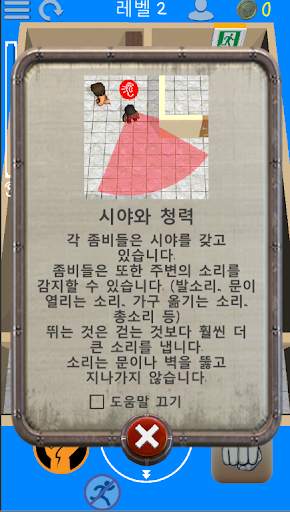 레벨 2
0
시야와 청력
각 좀비들은 시야를 갖고
있습니다.
좀비들은 또한 주변의 소리를
감지할 수 있습니다. (발소리. 문이
열리는 소리. 가구 옮기는 소리.
총소리 등)
뛰는 것은 걷는 것보다 훨씬 더
큰 소리를 냅니다.
소리는 문이나 벽을 뚫고
지나가지 않습니다.
도움말 끄기